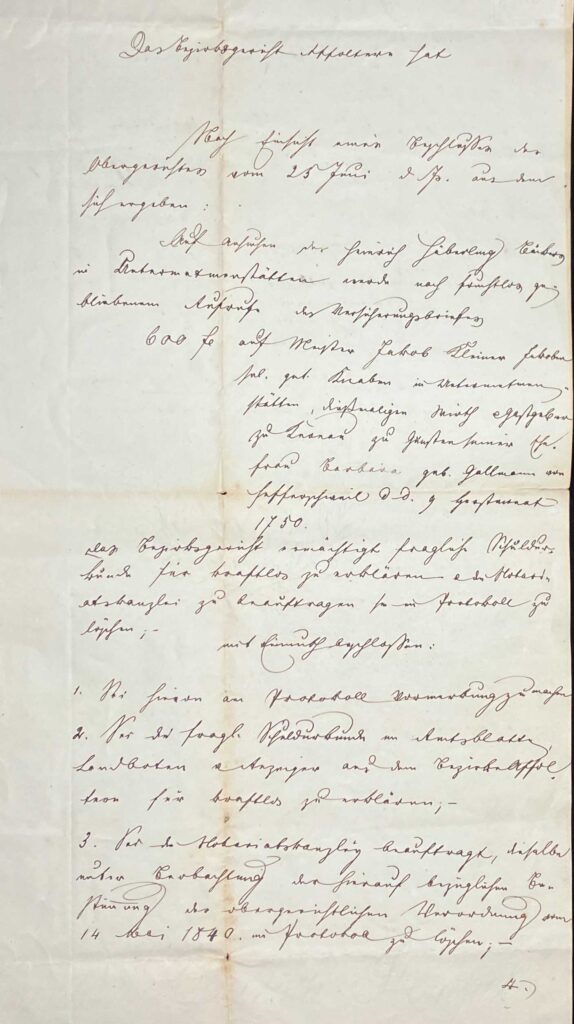 Das Bezirksgericht Affoltern hat
Nach Einsicht eines Beschlusses des
Obergerichtes vom 25 Juni d. Js. aus dem
sich ergeben:
Auf Ansuchen des Heinrich Häberling
in Untermettmenstätten werde nach fruchtlos ge-
bliebenem Aufrufe des Versicherungsbriefes
600 fl auf Meister Jakob Kleiner Jakoben
sel. gel. Knaben in Untermettmen-
stätten, dießmaligen Wirth & Gastgeber
zu zu Gunsten seiner Ehe-
frau Barbara geb. Gallmann von
Hefferschweil d. d. 9 Herbstmonat
1750.
das Bezirksgericht ermächtigt fragliche Schuldur-
kunde für kraftlos zu erklären & die Notari-
atskanzlei zu beauftragen sie im Protokoll zu
löschen; -
mit Einmuth beschlossen:
1. Sei hievon am Protokoll Vormerkung zu machen
2. Sei die fragl. Schuldurkunde im Amtsblatte,
Landboten & Anzeiger aus dem Bezirke Affol-
tern für kraftlos zu erklären; -
3. Sei die Notariatskanzley beauftragt, dieselbe
unter Beobachtung der hierauf bezüglichen Be-
stimmung der obergerichtlichen Verordnung vom
14 Mai 1840. im Protokoll zu löschen; -
4.)